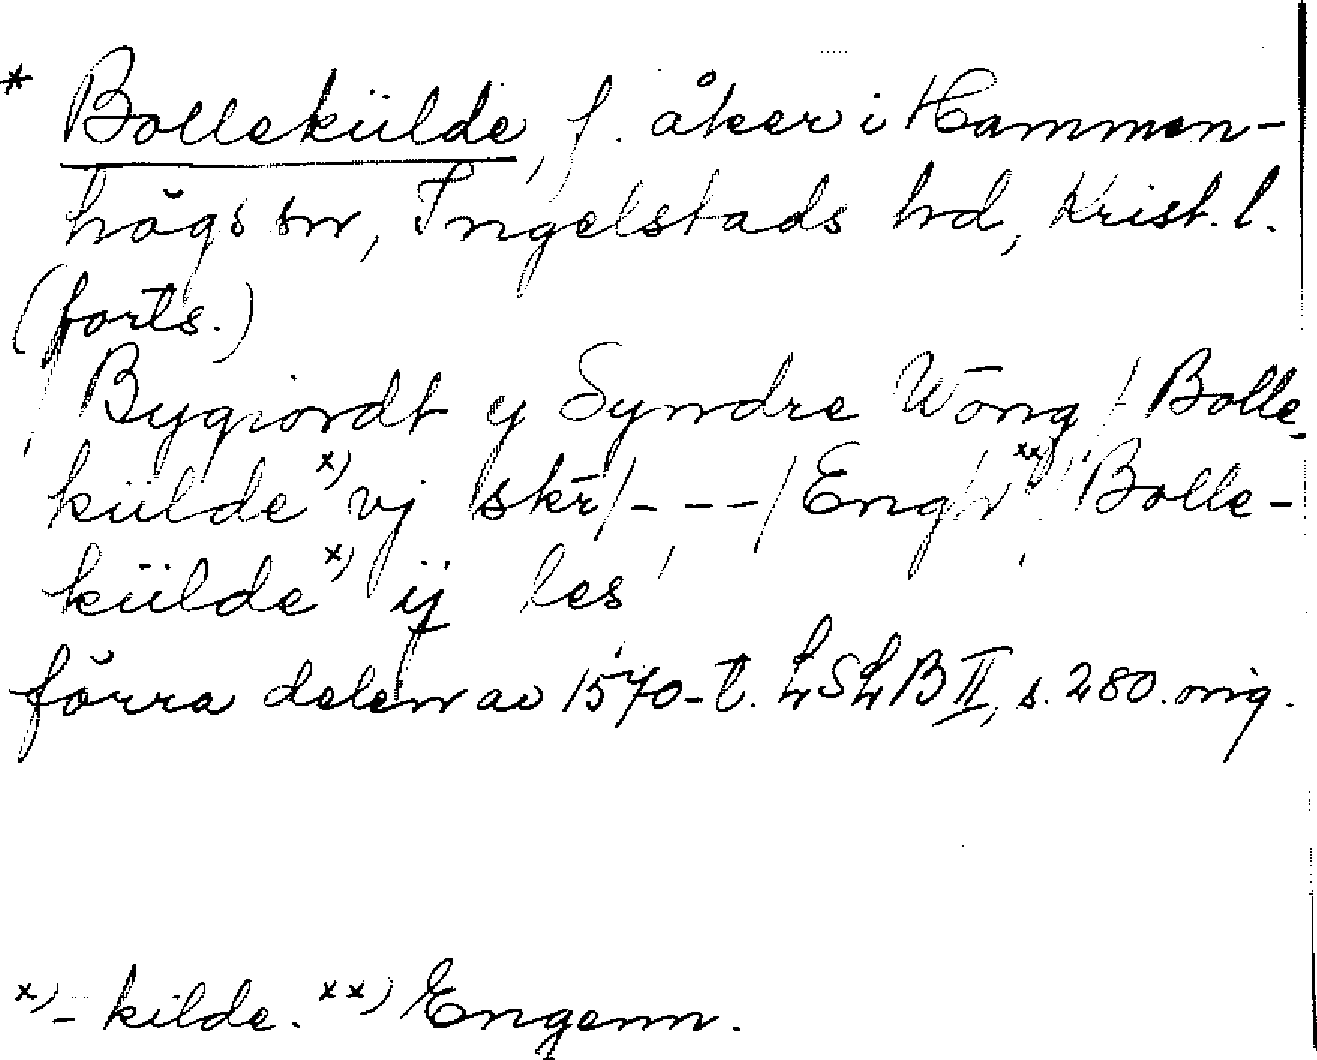 * Bollekülde, f. åker i Hammen-
högs sn, Ingelstads hd, Krist. l.
(forts.)
/ Bygiordt y Syndre Wong / Bolle-
külde x) vj skr / - - - / Engh xx) / Bolle-
külde x) ij les
förra delen av 1570-t. LSLB II, s. 280. orig.
x) -kilde. xx) Engenn.